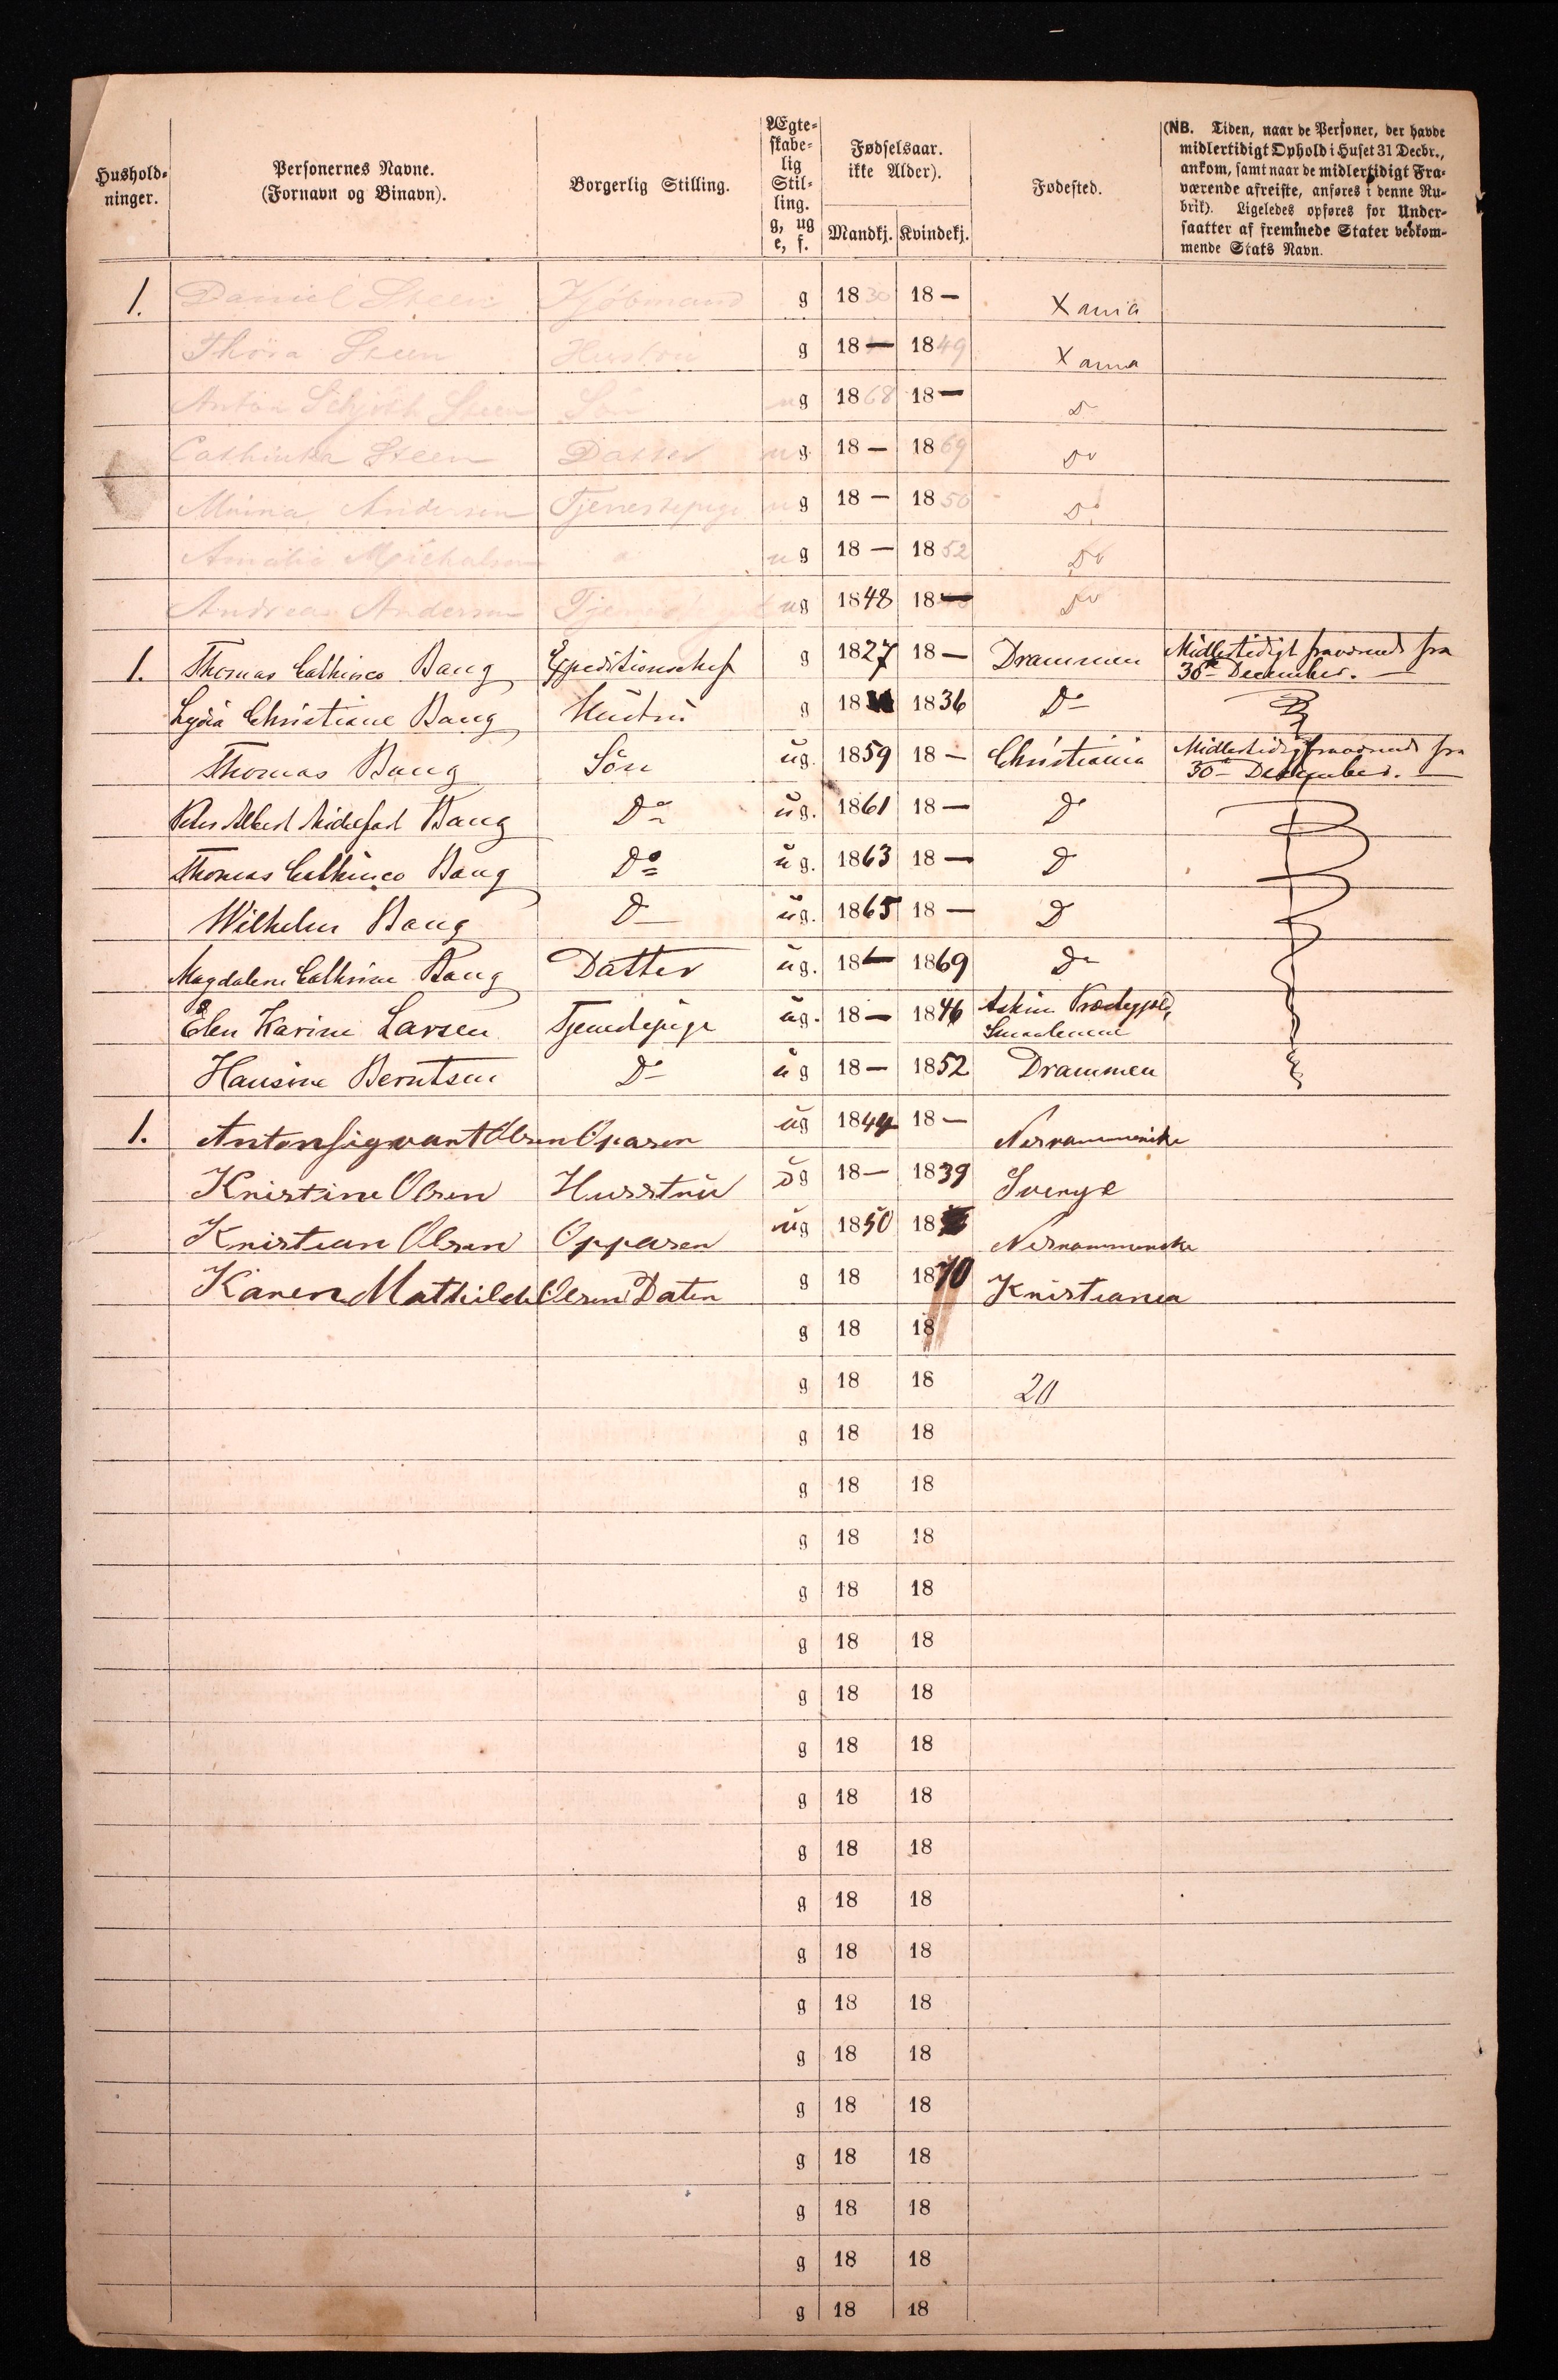 Hushold-
ninger.
Personernes Navne.
(Fornavn og Binavn).
Borgerlig Stilling.
Ægte-
skabe-
lig
Stil-
ling.
g, ug
e, f.
Fødselsaar.
ikke Alder).
Mandkj. Kvindekj.
Fødested.
(NB. Tiden, naar de Personer, der havde
midlertidigt Ophold i Huset 31 Decbr.,
ankom, samt naar de midlertidigt Fra-
værende afreiste, anføres i denne Ru-
brik). Ligeledes opføres for Under-
saatter af fremmede Stater vedkom-
mende Stats Navn.
1. Daniel Steen Kjöbmand g 1830 18 — Xania
Thora Steen Hustru g 18 — 1849 Xania
Anton Schjöth Steen Sön ug 1868 18 — D
Cathinka Steen Datter ug 18 — 1869 Do
Minna Andersen Tjenestepige ug 18 — 1850 Do
Amalia Michalsen ug 18 — 1852 Do
Andreas Andersen ug 1848 18 — Do
1. Thomas Cathinco Bang Expeditionschef g 1827 18 — Drammen Midlertidigt fraværende fra
30te December. —
Lydia Christiane Bang Hustru g 18 1836 Do
Thomas Bang Sön ug. 1859 18 — Christiania Midlertidig fraværende fra
30te December. —
Peder Albert Midelfart Bang Do ug. 1861 18 — Do
Thomas Cathinco Bang Do ug. 1863 18 — D
Wilhelm Bang D ug. 1865 18 — D
Magdalene Cathrine Bang Datter ug. 18 — 1869 Do
Elen Karine Larsen Tjenestepige ug. 18 — 1846 Askim Præstegjeld,
Smaalenene
Hansine Berntsen Do ug 18 — 1852 Drammen
1. Anton Sigvart Olsen Oparen ug 1844 18 —
Kristine Olsen Husstru 18 — 1839 Sverge
Kristian Olsen Opparen ug 1850 18
Karen Mathilde Olsen Daten g 18 1870 Kristiania
g 18 18
g 18 18 20
g 18 18
g 18 18
g 18 18
g 18 18
g 18 18
g 18 18
g 18 18
g 18 18
g 18 18
g 18 18
g 18 18
g 18 18
g 18 18
g 18 18
g 18 18
g 18 18
g 18 18
g 18 18